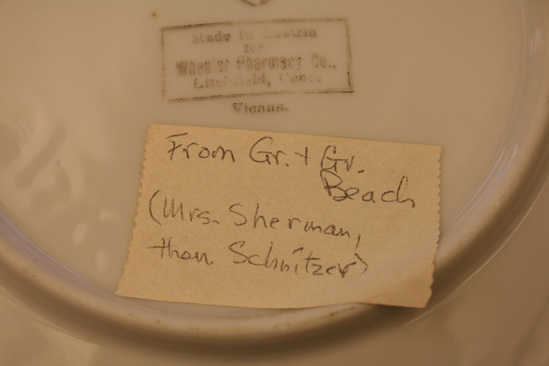 Made in Austria
for
Wheeler Pharmacy Co.,
Litchfield, Conn.
Vienna.
From Gr. + Gr.
Beach
(Mrs. Sherman,
then Schnitzer)